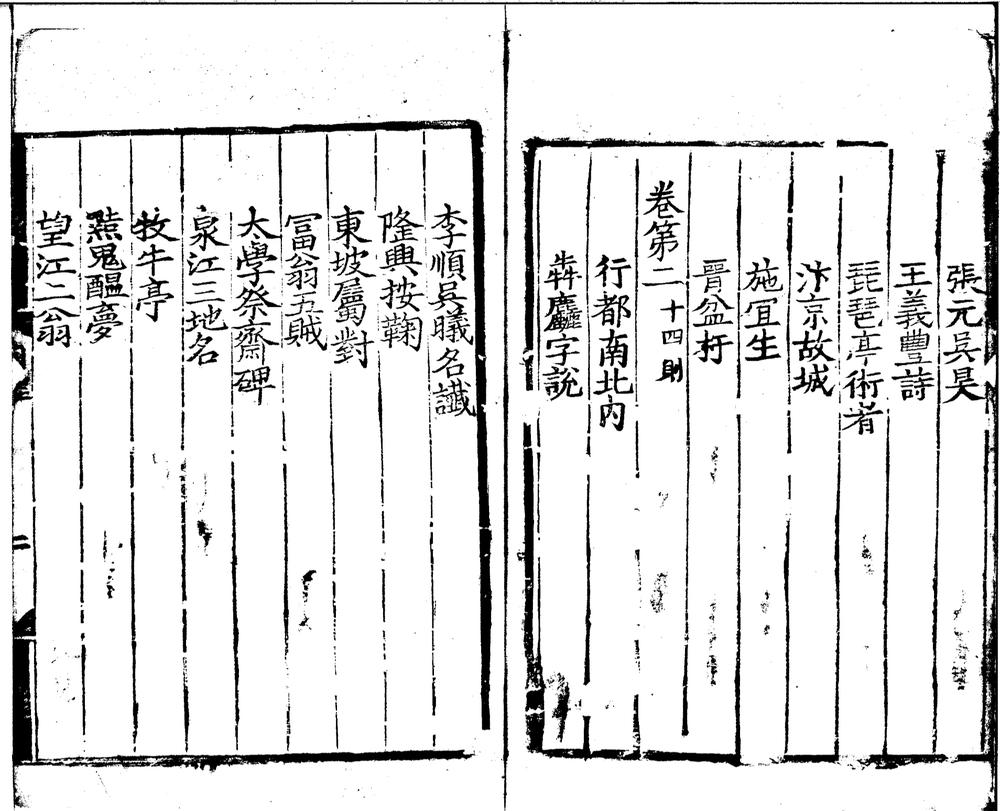 張元吳昊
王義豐詩
琵琶亭術者
汴京故城
施宜生
晉盆杅
卷第二 十四則
行都南北内
犇麤字說
李順吳曦名讖
隆興按鞠
東坡屬對
冨翁五賊
太學祭齋碑
泉江三地名
牧牛亭
黠鬼醖夢
望江二翁
二